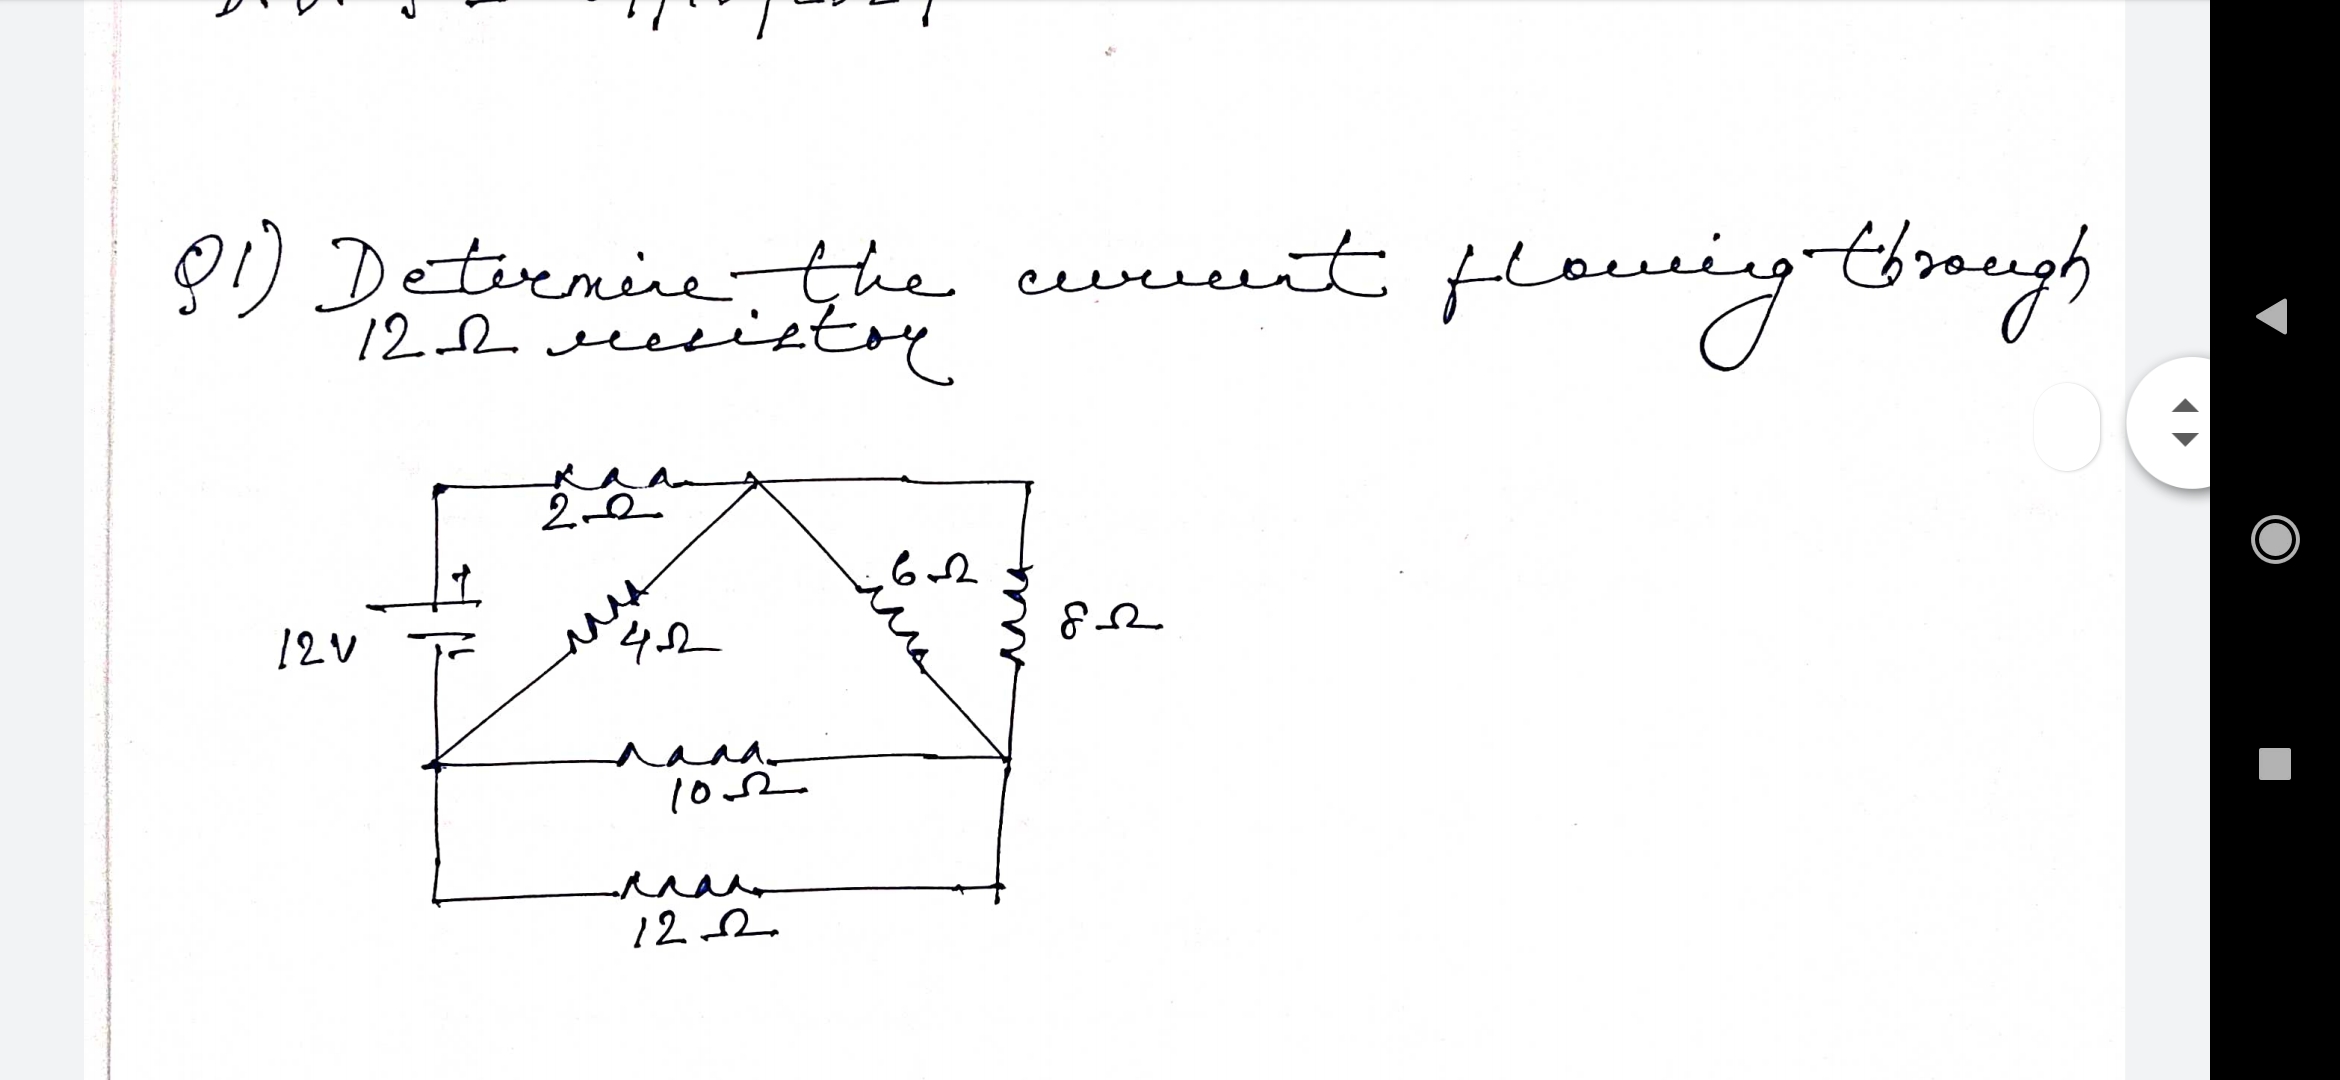 Q1) Determine the current flowing through
12Ω resistor
2Ω
+
6Ω
8Ω
12V
4Ω
-
10Ω
12Ω